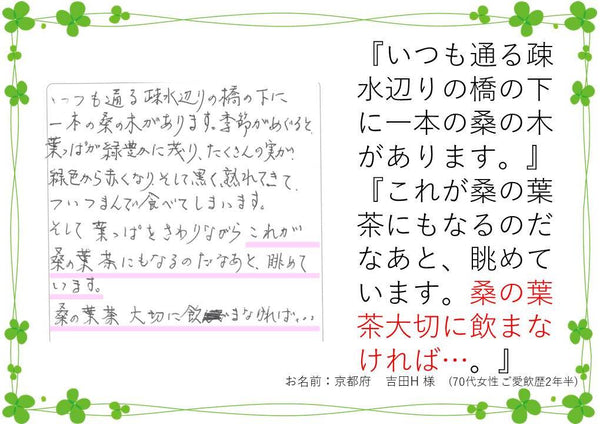 いつも通る疎水辺りの橋の下に
一本の桑の木があります。季節がめぐると、
葉っぱが緑豊かに茂り、たくさんの実が
緑色から赤くなり、そして黒く熟れてきて、
ついつまんで食べてしまいます。
そして葉っぱをさわりながらこれが
桑の葉茶にもなるのだなあと、眺めて
います。
桑の葉茶 大切に飲まなければ…
『いつも通る疎
水辺りの橋の下
に一本の桑の木
があります。』
『これが桑の葉
茶にもなるのだ
なあと、眺めて
います。桑の葉
茶大切に飲まな
ければ…。』
お名前：京都府 吉田H 様 (70代女性 ご愛飲歴2年半)